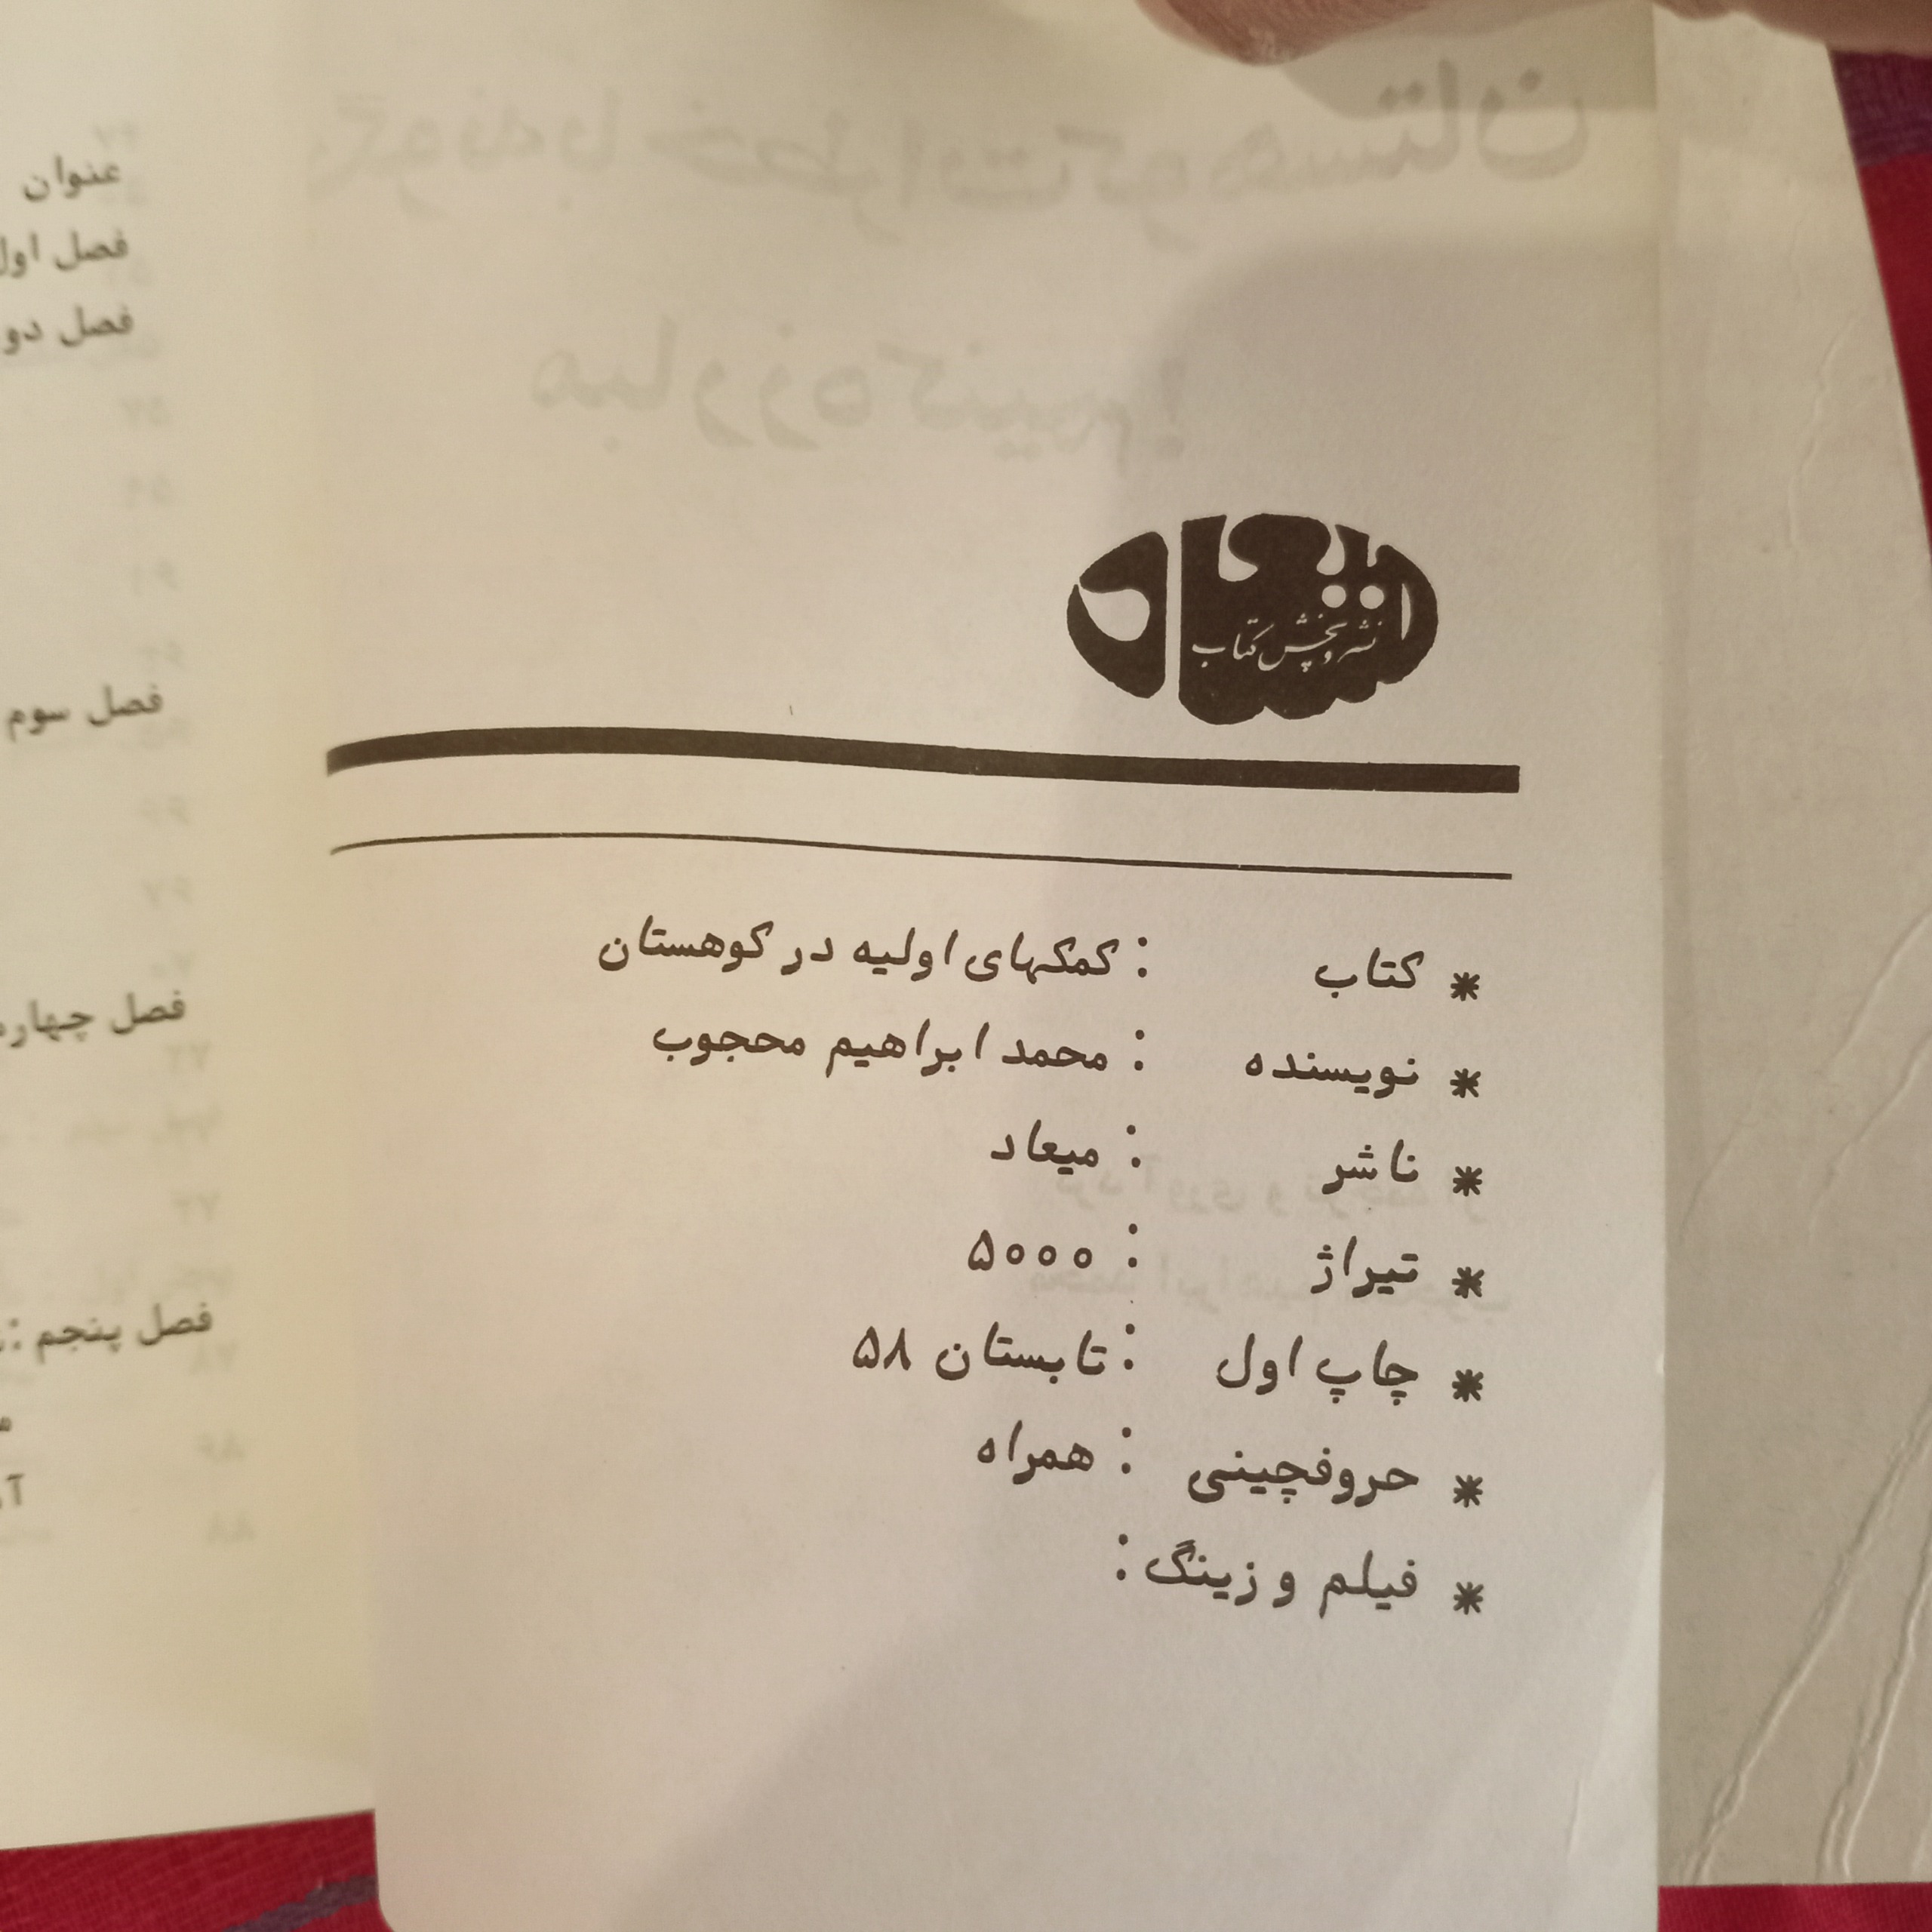 نشر و پخش کتاب
* کتاب : کمکهای اولیه در کوهستان
* نویسنده : محمد ابراهیم محجوب
* ناشر : میعاد
* تیراژ : ۵۰۰۰
* چاپ اول : تابستان ۵۸
* حروفچینی : همراه
* فیلم و زینگ :
عنوان
فصل اول
فصل دو
فصل سوم
فصل چهارم
فصل پنجم :